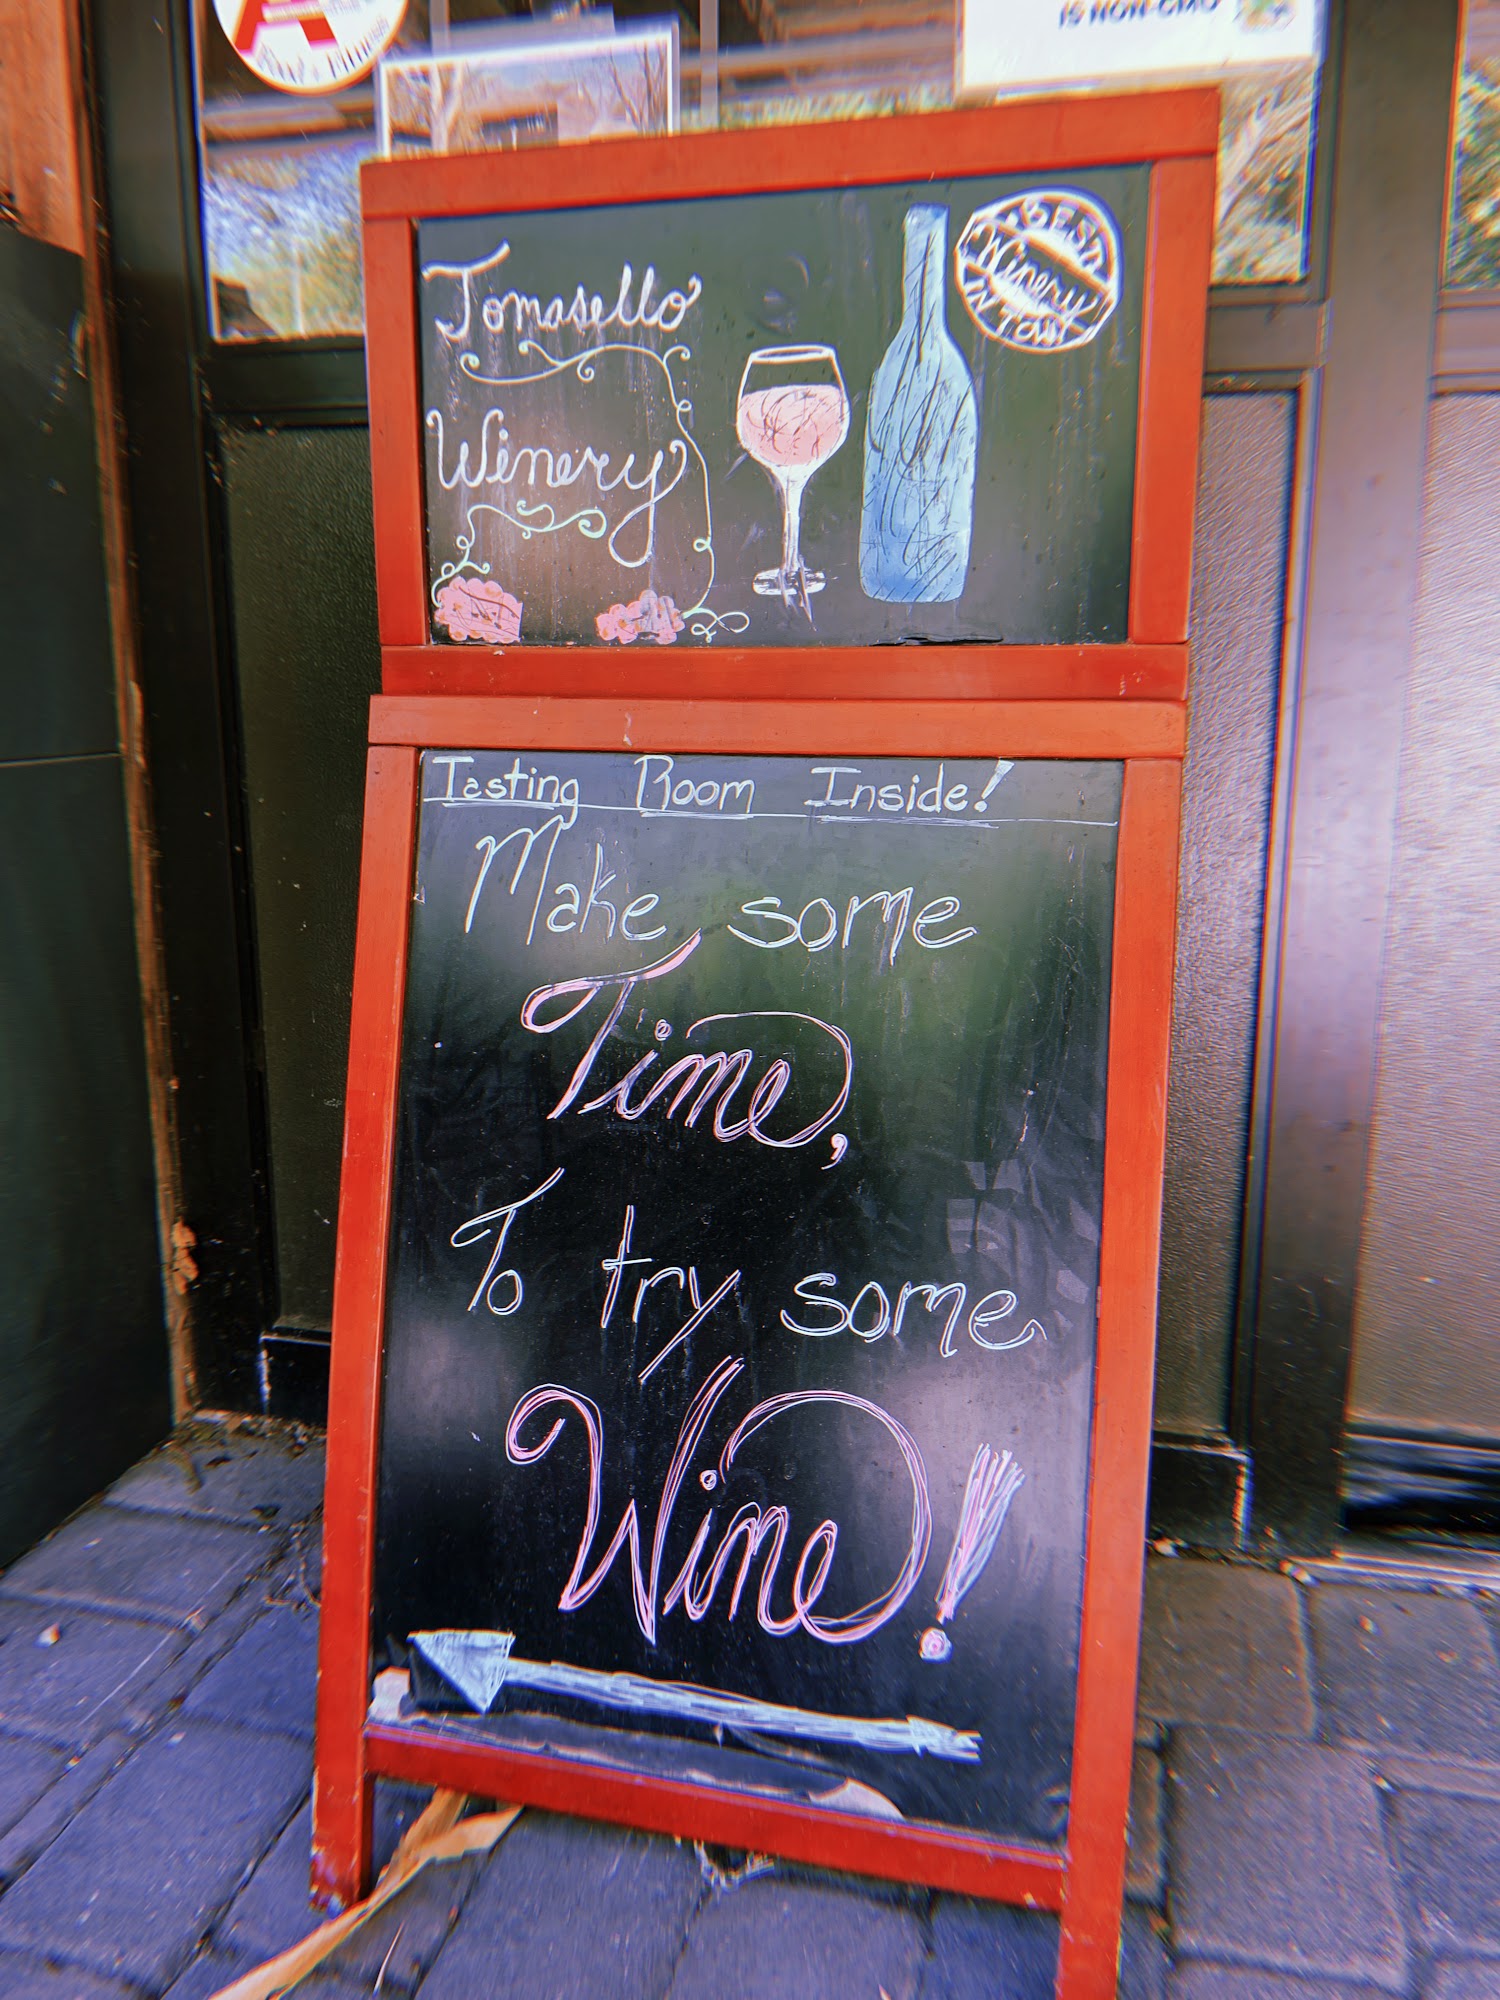 IS NON-GMO
Tomasello
Winery
BEST
Winery
IN TOWN
Tasting Room Inside!
Make some
Time,
To try some
Wine!